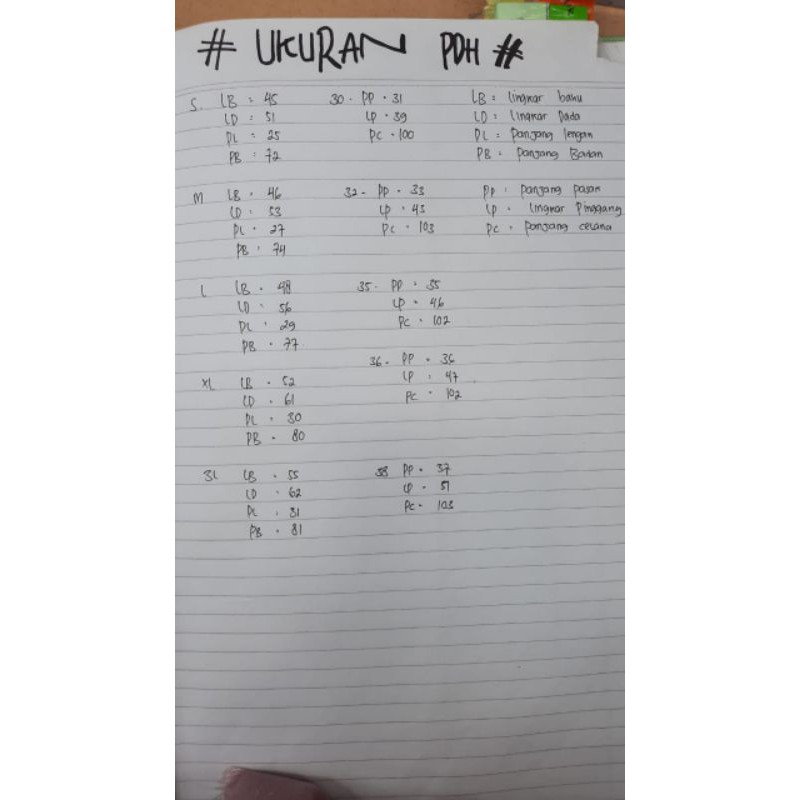 # UKURAN PDH #
S. LB = 45 30 - PP = 31 LB = lingkar bahu
LD = 51 LP = 39 LD = lingkar Dada
PL = 25 PC = 100 PL = Panjang lengan
PB = 72 PB = Panjang Badan
M LB = 46 32 - PP = 33 PP = panjang pasan
LD = 53 LP = 43 LP = lingkar Pinggang
PL = 27 PC = 103 PC = Panjang celana
PB = 74
L LB = 48 35 - PP = 35
LD = 56 LP = 46
PL = 29 PC = 102
PB = 77
36 - PP = 36
XL LB = 52 LP = 47
LD = 61 PC = 102
PL = 30
PB = 80
3L LB = 55 38 PP = 37
LD = 62 LP = 51
PL = 31 PC = 103
PB = 81